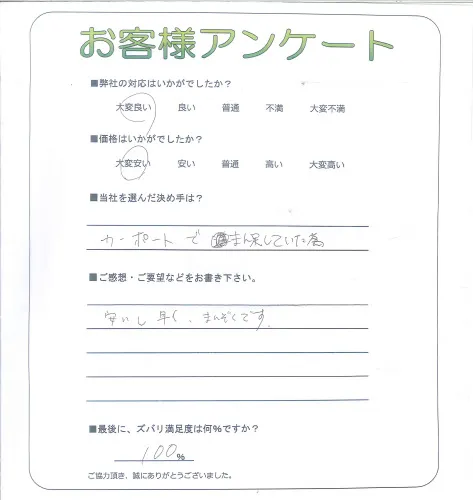 お客様アンケート
■弊社の対応はいかがでしたか?
大変良い 良い 普通 不満 大変不満
■価格はいかがでしたか?
大変安い 安い 普通 高い 大変高い
■当社を選んだ決め手は?
カーポートで まん足していた為
■ご感想・ご要望などをお書き下さい。
安いし早く、まんぞくです。
■最後に、ズバリ満足度は何%ですか?
100%
ご協力頂き、誠にありがとうございました。